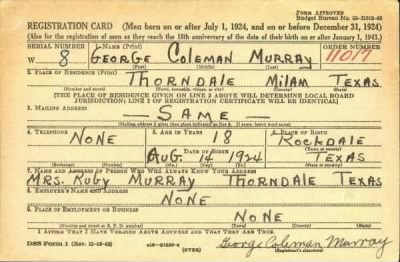 FORM APPROVED
REGISTRATION CARD (Men born on or after July 1, 1924, and on or before December 31, 1924)
(Also for the registration of men as they reach the 18th anniversary of the date of their birth on or after January 1, 1943.)
SERIAL NUMBER 1. NAME (Print) ORDER NUMBER
W 8 GEORGE COLEMAN MURRAY 11017
(First) (Middle) (Last)
2. PLACE OF RESIDENCE (Print)
THORNDALE MILAM TEXAS
(Number and street) (Town, township, village, or city) (County) (State)
[THE PLACE OF RESIDENCE GIVEN ON LINE 2 ABOVE WILL DETERMINE LOCAL BOARD
JURISDICTION; LINE 2 OF REGISTRATION CERTIFICATE WILL BE IDENTICAL]
3. MAILING ADDRESS
— SAME —
[Mailing address if other than place indicated on line 2. If same, insert word same]
4. TELEPHONE 5. AGE IN YEARS 6. PLACE OF BIRTH
NONE 18 ROCKDALE
DATE OF BIRTH (Town or county)
AUG. 14 1924 TEXAS
(Exchange) (Number) (Mo.) (Day) (Yr.) (State or country)
7. NAME AND ADDRESS OF PERSON WHO WILL ALWAYS KNOW YOUR ADDRESS
MRS. RUBY MURRAY THORNDALE TEXAS
8. EMPLOYER'S NAME AND ADDRESS
NONE
9. PLACE OF EMPLOYMENT OR BUSINESS
NONE
(Number and street or R. F. D. number) (Town) (County) (State)
I AFFIRM THAT I HAVE VERIFIED ABOVE ANSWERS AND THAT THEY ARE TRUE.
DSS Form 1 (OVER) George Coleman Murray
(Registrant's signature)